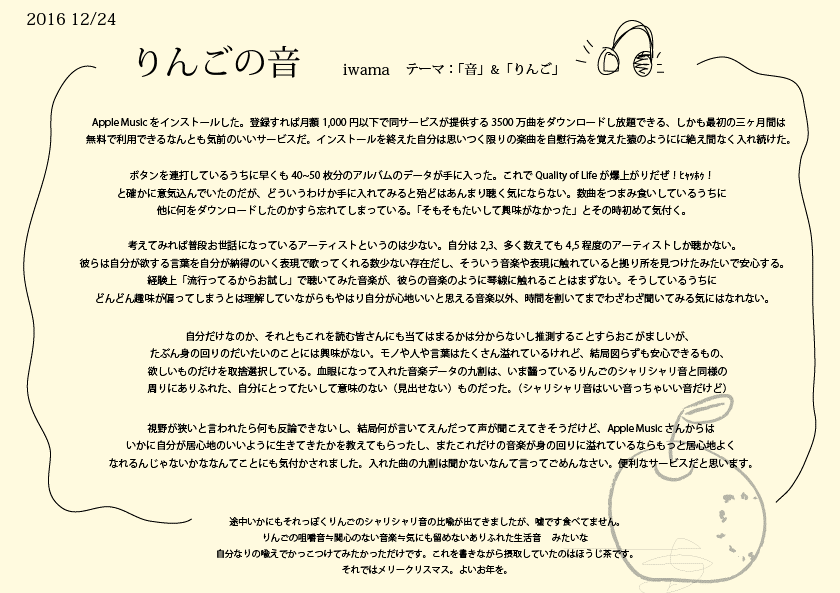 2016 12/24
りんごの音 iwama テーマ：「音」&「りんご」
Apple Music をインストールした。登録すれば月額 1,000 円以下で同サービスが提供する 3500 万曲をダウンロードし放題できる、しかも最初の三ヶ月間は
無料で利用できるなんとも気前のいいサービスだ。インストールを終えた自分は思いつく限りの楽曲を自慰行為を覚えた猿のようにに絶え間なく入れ続けた。
ボタンを連打しているうちに早くも 40~50 枚分のアルバムのデータが手に入った。これで Quality of Life が爆上がりだぜ！ﾋｬｯﾎｩ！
と確かに意気込んでいたのだが、どういうわけか手に入れてみると殆どはあんまり聴く気にならない。数曲をつまみ食いしているうちに
他に何をダウンロードしたのかすら忘れてしまっている。「そもそもたいして興味がなかった」とその時初めて気付く。
考えてみれば普段お世話になっているアーティストというのは少ない。自分は 2,3、多く数えても 4,5 程度のアーティストしか聴かない。
彼らは自分が欲する言葉を自分が納得のいく表現で歌ってくれる数少ない存在だし、そういう音楽や表現に触れていると拠り所を見つけたみたいで安心する。
経験上「流行ってるからお試し」で聴いてみた音楽が、彼らの音楽のように琴線に触れることはまずない。そうしているうちに
どんどん趣味が偏ってしまうとは理解していながらもやはり自分が心地いいと思える音楽以外、時間を割いてまでわざわざ聞いてみる気にはなれない。
自分だけなのか、それともこれを読む皆さんにも当てはまるかは分からないし推測することすらおこがましいが、
たぶん身の回りのだいたいのことには興味がない。モノや人や言葉はたくさん溢れているけれど、結局図らずも安心できるもの、
欲しいものだけを取捨選択している。血眼になって入れた音楽データの九割は、いま齧っているりんごのシャリシャリ音と同様の
周りにありふれた、自分にとってたいして意味のない（見出せない）ものだった。（シャリシャリ音はいい音っちゃいい音だけど）
視野が狭いと言われたら何も反論できないし、結局何が言いてえんだって声が聞こえてきそうだけど、Apple Music さんからは
いかに自分が居心地のいいように生きてきたかを教えてもらったし、またこれだけの音楽が身の回りに溢れているならもっと居心地よく
なれるんじゃないかななんてことにも気付かされました。入れた曲の九割は聞かないなんて言ってごめんなさい。便利なサービスだと思います。
途中いかにもそれっぽくりんごのシャリシャリ音の比喩が出てきましたが、嘘です食べてません。
りんごの咀嚼音≒関心のない音楽≒気にも留めないありふれた生活音　みたいな
自分なりの喩えでかっこつけてみたかっただけです。これを書きながら摂取していたのはほうじ茶です。
それではメリークリスマス。よいお年を。